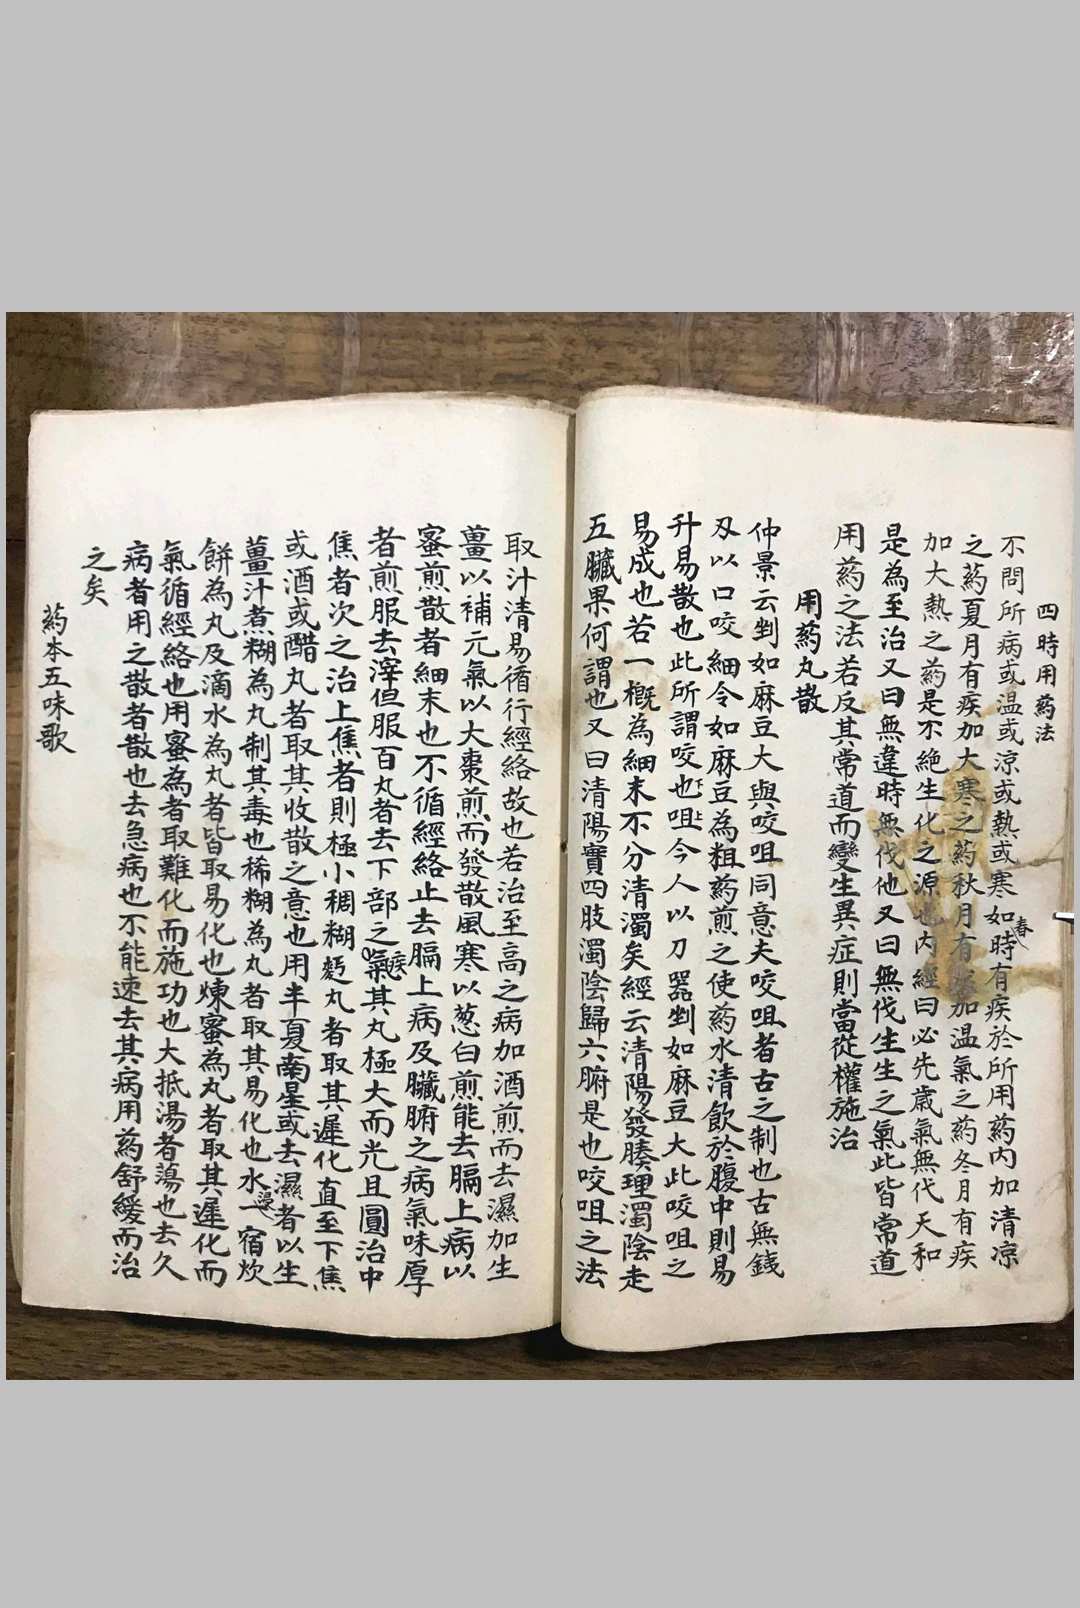 四時用葯法
不問所病或温或凉或熱或寒如春時有疾於所用葯內加清凉
之葯夏月有疾加大寒之葯秋月有疾加温氣之葯冬月有疾
加大熱之葯是不絕生化之源也內經曰必先歲氣無代天和
是為至治又曰無違時無伐他又曰無伐生生之氣此皆常道
用葯之法若反其常道而變生異症則當從權施治
用葯丸散
仲景云剉如麻豆大與咬咀同意夫咬咀者古之制也古無錢
刄以口咬細令如麻豆為粗葯煎之使葯水清飲於腹中則易
升易散也此所謂咬也咀今人以刀器剉如麻豆大此咬咀之
易成也若一概為細末不分清濁矣經云清陽發腠理濁陰走
五臟果何謂也又曰清陽實四肢濁陰歸六腑是也咬咀之法
取汁清易循行經絡故也若治至高之病加酒煎而去濕加生
薑以補元氣以大棗煎而發散風寒以葱白煎能去膈上病以
蜜煎散者細末也不循經絡止去膈上病及臟腑之病氣味厚
者煎服去滓但服百丸者去下部之痰氣其丸極大而光且圓治中
焦者次之治上焦者則極小稠糊麪丸者取其遲化直至下焦
或酒或醋丸者取其收散之意也用半夏南星或去濕者以生
薑汁煮糊為丸制其毒也稀糊為丸者取其易化也水浸一宿炊
餅為丸及滴水為丸者皆取易化也煉蜜為丸者取其遲化而
氣循經絡也用蜜為者取難化而施功也大抵湯者蕩也去久
病者用之散者散也去急病也不能速去其病用葯舒緩而治
之矣
葯本五味歌